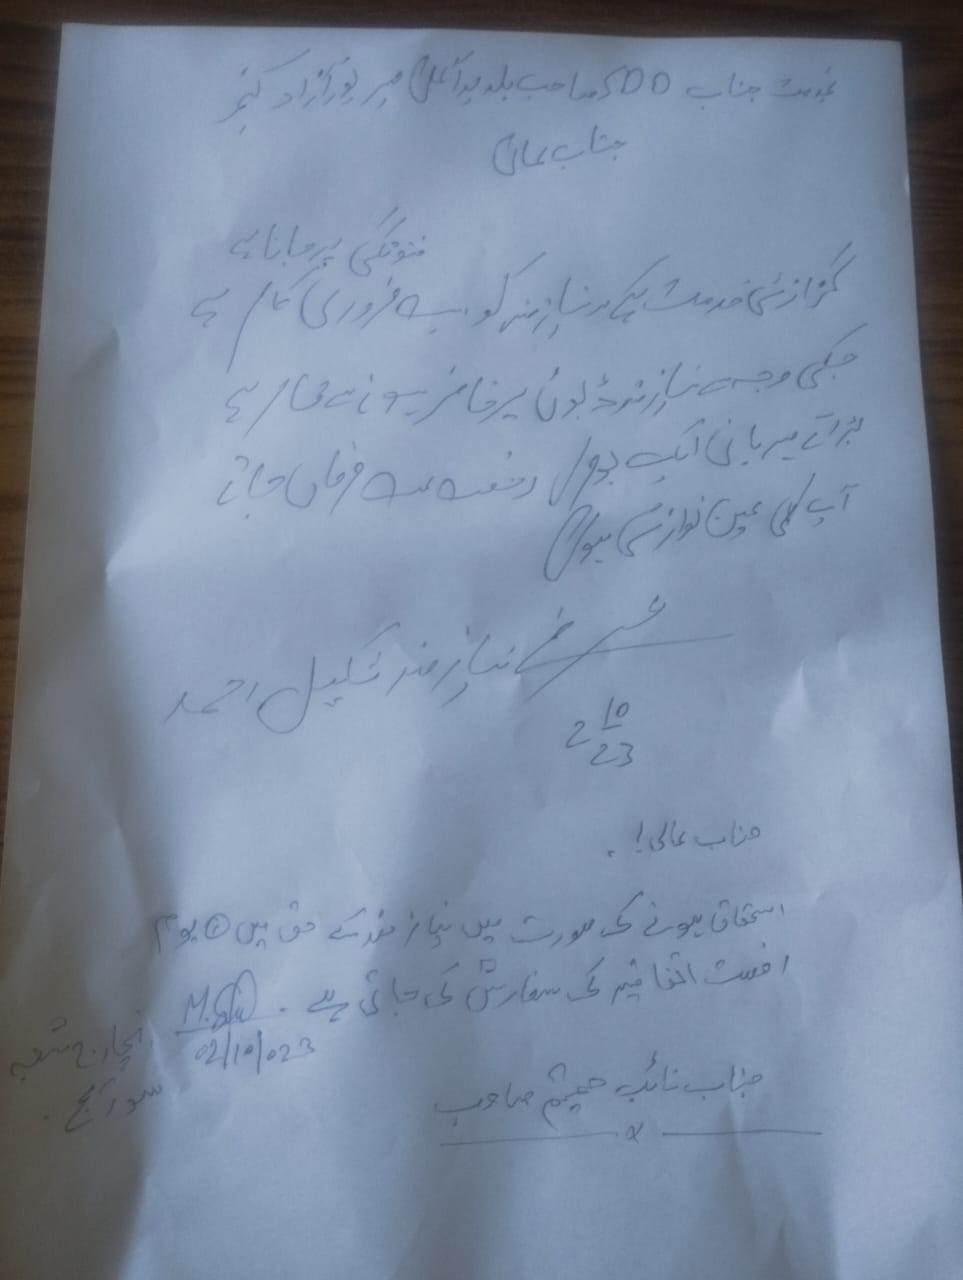 بخدمت جناب DDO صاحب بلدیہ اعلیٰ میرپور آزاد کشمیر
جناب عالی
فوتگی پر جانا ہے
گزارش خدمت ہیکہ نیازمند کو بہت ضروری کام ہے
جسکی وجہ سے نیازمند ڈیوٹی پر حاضر ہونے سے قاصر ہے
برائے مہربانی ایک یوم کی رخصت فرمائی جائے
آپ کی عین نوازش ہوگی
عرضے نیازمند شکیل احمد
2 10/23
جناب عالی!
استحقاق ہونے کی صورت میں نیازمند کے حق میں ① یوم
رخصت اتفاقیہ کی سفارش کی جاتی ہے۔
02/10/023
انچارج شعبہ
سوریج۔
جناب نائب مہتمم صاحب